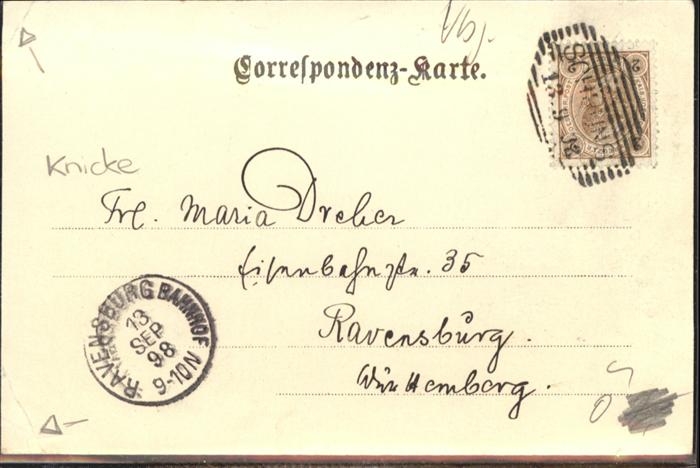 Correspondenz-Karte.
Knicke
Frl. Maria Dreher
Eisenbahnstr. 35
Ravensburg.
Württemberg.
RAVENSBURG BAHNHOF
13
SEP
98
9-10N
2 2
13 9 98